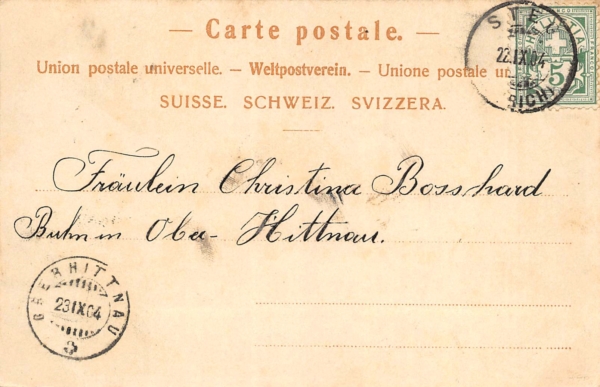 — Carte postale. —
Union postale universelle. — Weltpostverein. — Unione postale un
SUISSE. SCHWEIZ. SVIZZERA.
22.IX.04
5
Fräulein Christina Bosshard
Ober-Hittnau.
OBERHITTNAU
23IX04